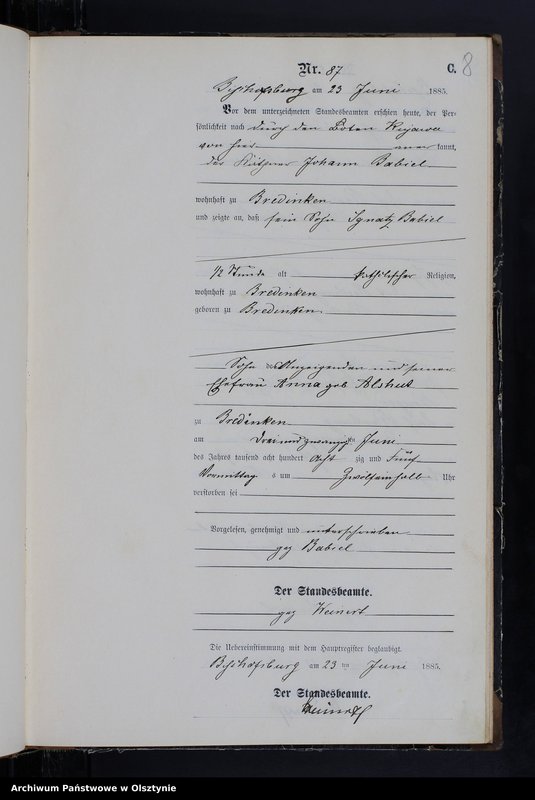 Nr. 87
C. 8
Bischofsburg am 23 Juni 1885.
Vor dem unterzeichneten Standesbeamten erschien heute, der Per-
sönlichkeit nach durch den Boten
von hier aner kannt,
der Käthner Johann Babiel
wohnhaft zu Bredinken
und zeigte an, daß sein Sohn Ignatz Babiel
1/2 Stunde alt katholischer Religion,
wohnhaft zu Bredinken
geboren zu Bredinken.
Sohn des Anzeigenden und seiner
Ehefrau Anna geb
zu Bredinken
am Dreiundzwanzigsten Juni
des Jahres tausend acht hundert Acht zig und Fünf
Vormittag s um Uhr
verstorben sei
Vorgelesen, genehmigt und unterschrieben
gez Babiel
Der Standesbeamte.
gez
Die Uebereinstimmung mit dem Hauptregister beglaubigt.
Bischofsburg am 23 ten Juni 1885.
Der Standesbeamte.
Archiwum Państwowe w Olsztynie